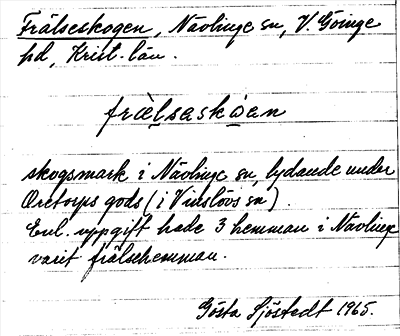 Frälseskogen, Nävlinge sn, V. Göinge
hd, Krist. län.
frälsaskåan
skogsmark i Nävlinge sn, lydande under
Oretorps gods (i Vinslövs sn).
Enl. uppgift hade 3 hemman i Nävlinge
varit frälsehemman.
Gösta Sjöstedt 1965.